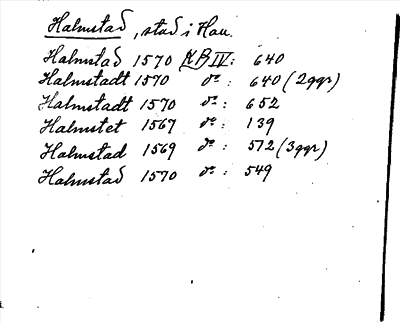 Halmstad, stad i Hall.
Halmstad 1570 KB IV: 640
Halmstadt 1570 do: 640 (2ggr)
Halmstadt 1570 do: 652
Halmstet 1567 do: 139
Halmstad 1569 do: 572 (3ggr)
Halmstad 1570 do: 549